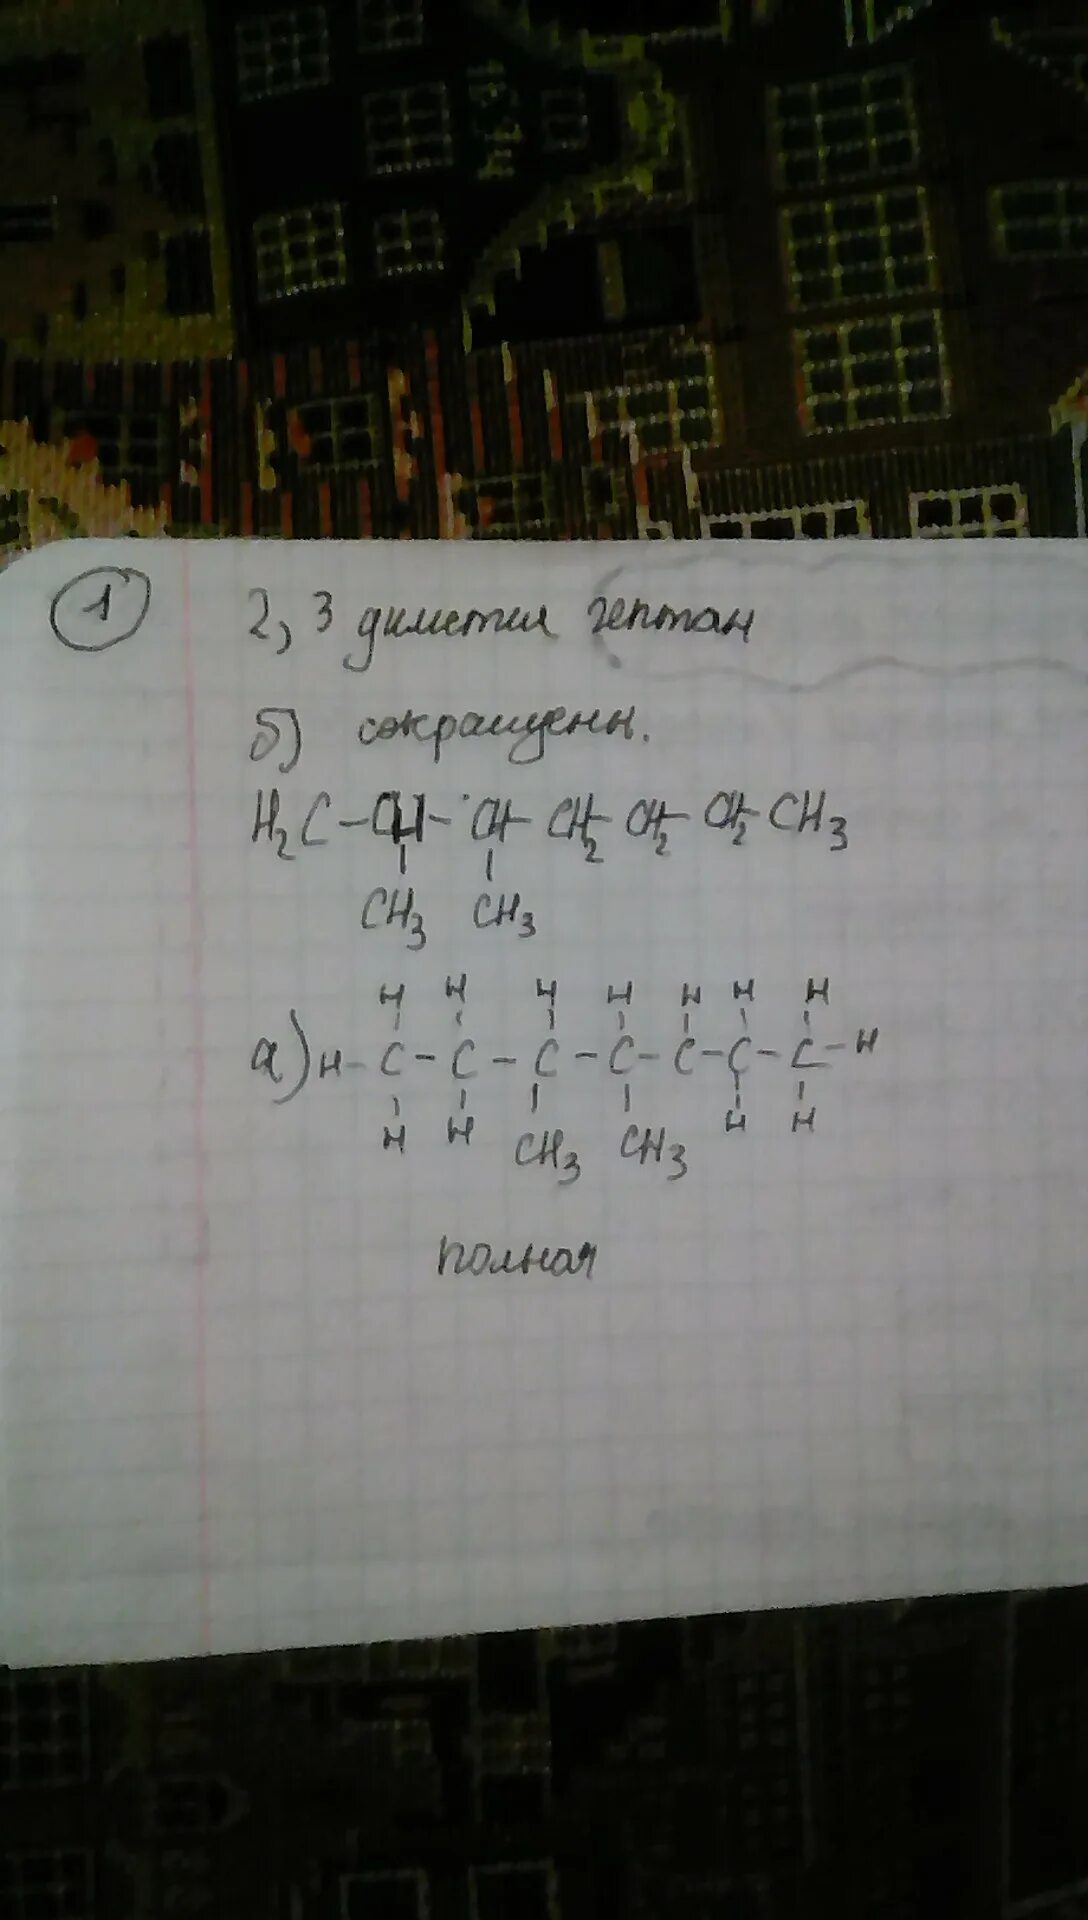 1 2, 3 диметил гептан
б) сокращенн.
H2C - CH - CH - CH2 - CH2 - CH2 - CH3
CH3 CH3
H H H H H H H
а) H - C - C - C - C - C - C - C - H
H H CH3 CH3 H H
полная